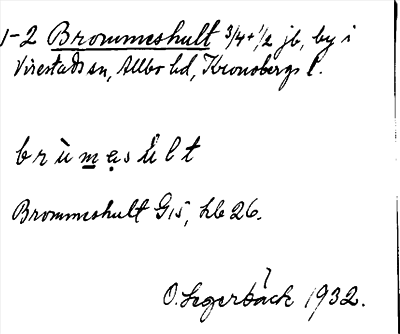 1-2 Brommeshult 3/4+1/2 jb, by i
Virestads sn, Allbo hd, Kronobergs l.
brùmasùlt
Brommeshult G15, hb 26.
O. Segerbäck 1932.